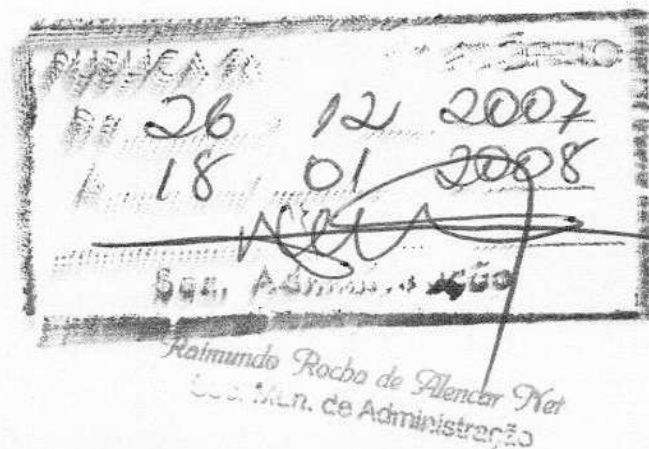 PUBLICA
26 12 2007
18 01 2008
Sec. Administração
Raimundo Rocha de Alencar Net
Sec. Mun. de Administração